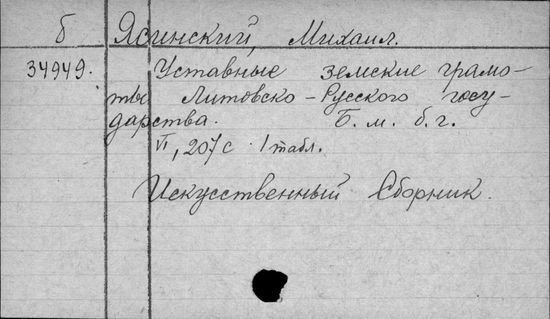 б Ясинский, Михаил.
34949. Уставные земские грамо-
ты Литовско-Русского госу-
дарства. Б. м. б. г.
VI, 207 с. 1 табл.
Искусственный Сборник.